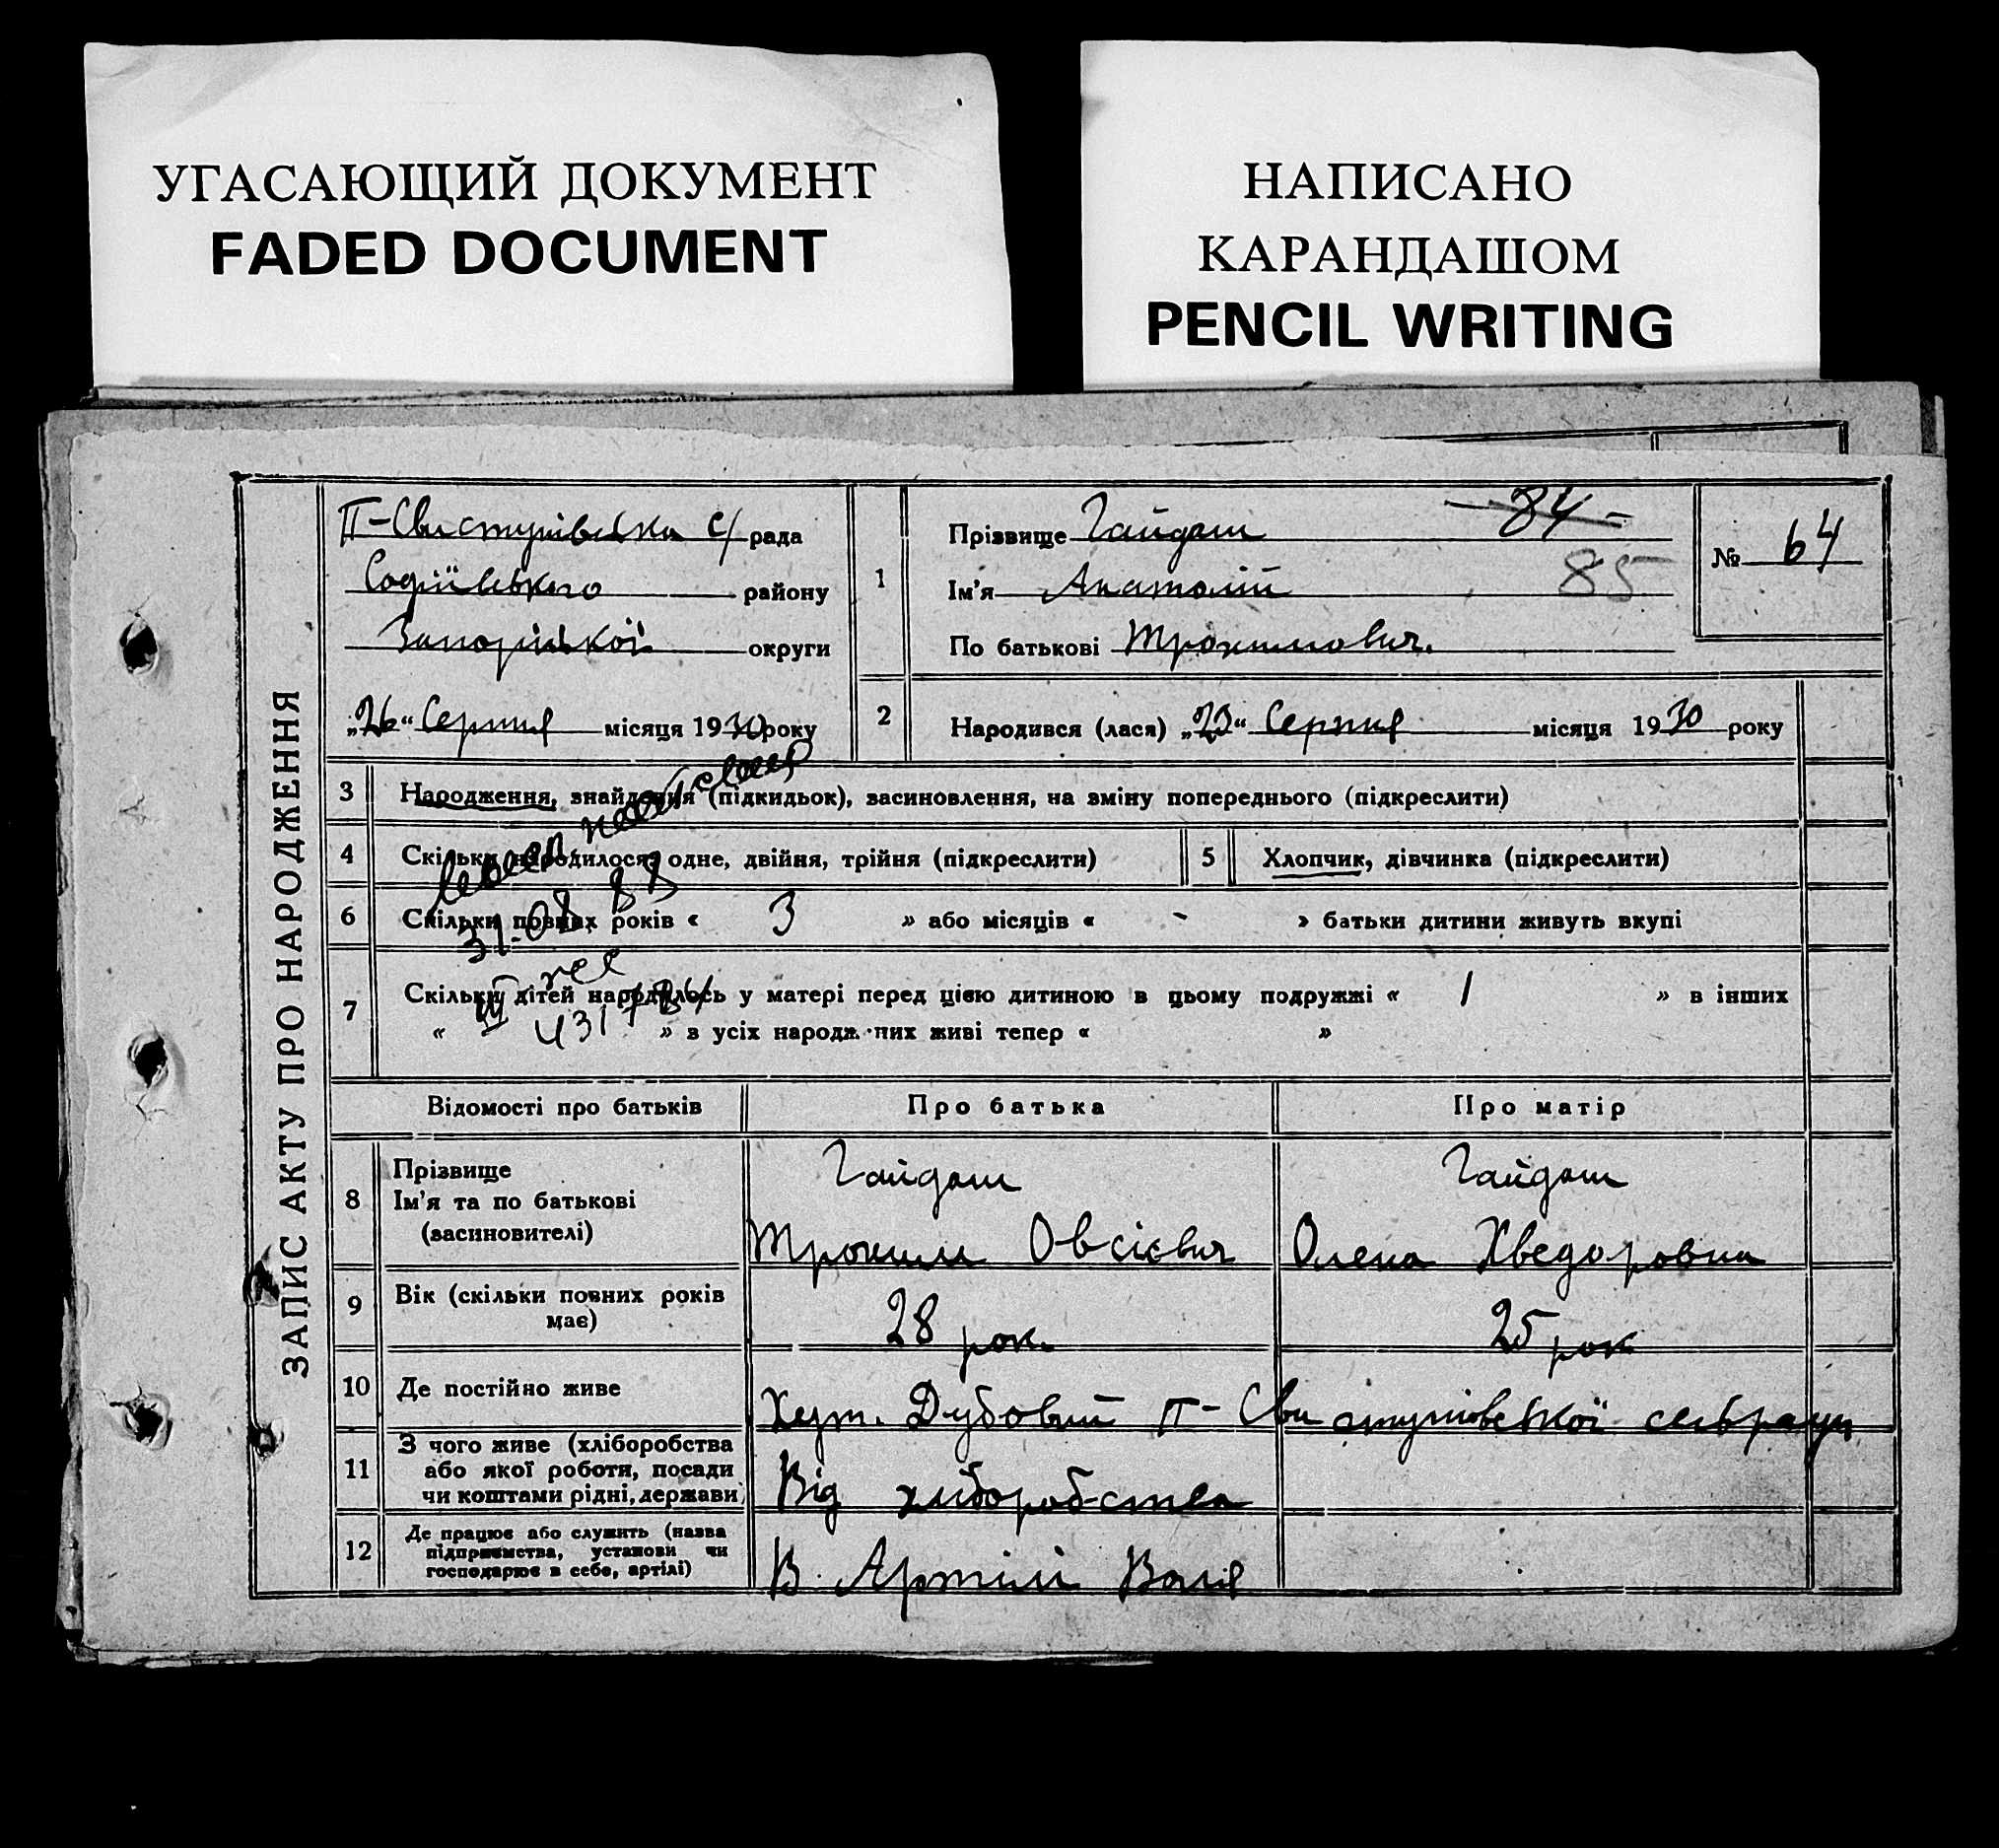 УГАСАЮЩИЙ ДОКУМЕНТ
FADED DOCUMENT
НАПИСАНО
КАРАНДАШОМ
PENCIL WRITING
ЗАПИС АКТУ ПРО НАРОДЖЕННЯ
П-Свистунівська с/рада
Софіївського району
Запорізької округи
„26“ Серпня місяця 1930 року
1
Прізвище Гайдаш
Ім'я Анатолій
По батькові Трохимович.
84
85
№ 64
2
Народився (лася) „23“ Серпня місяця 1930 року
3 Народження, знайдення (підкидьок), засиновлення, на зміну попереднього (підкреслити)
4 Скільки народилося, одне, двійня, трійня (підкреслити)
5 Хлопчик, дівчинка (підкреслити)
6 Скільки повних років « 3 » або місяців « - » батьки дитини живуть вкупі
31.08.88
7 Скільки дітей народилось у матері перед цією дитиною в цьому подружжі « 1 » в інших
« » в усіх народж.них живі тепер « »
Відомості про батьків
Про батька
Про матір
8
Прізвище
Ім'я та по батькові
(засиновителі)
Гайдаш
Трохим Овсієвич
Гайдаш
Олена Хведоровна
9
Вік (скільки повних років
має)
28 рок.
25 рок
10 Де постійно живе
Хут. Дубовий П-Свистунівської сельради
11
З чого живе (хліборобства
або якої роботи, посади
чи коштами рідні, держави)
Від хліборобства
12
Де працює або служить (назва
підприємства, установи чи
господарює в себе, артілі)
В Артілі Воля